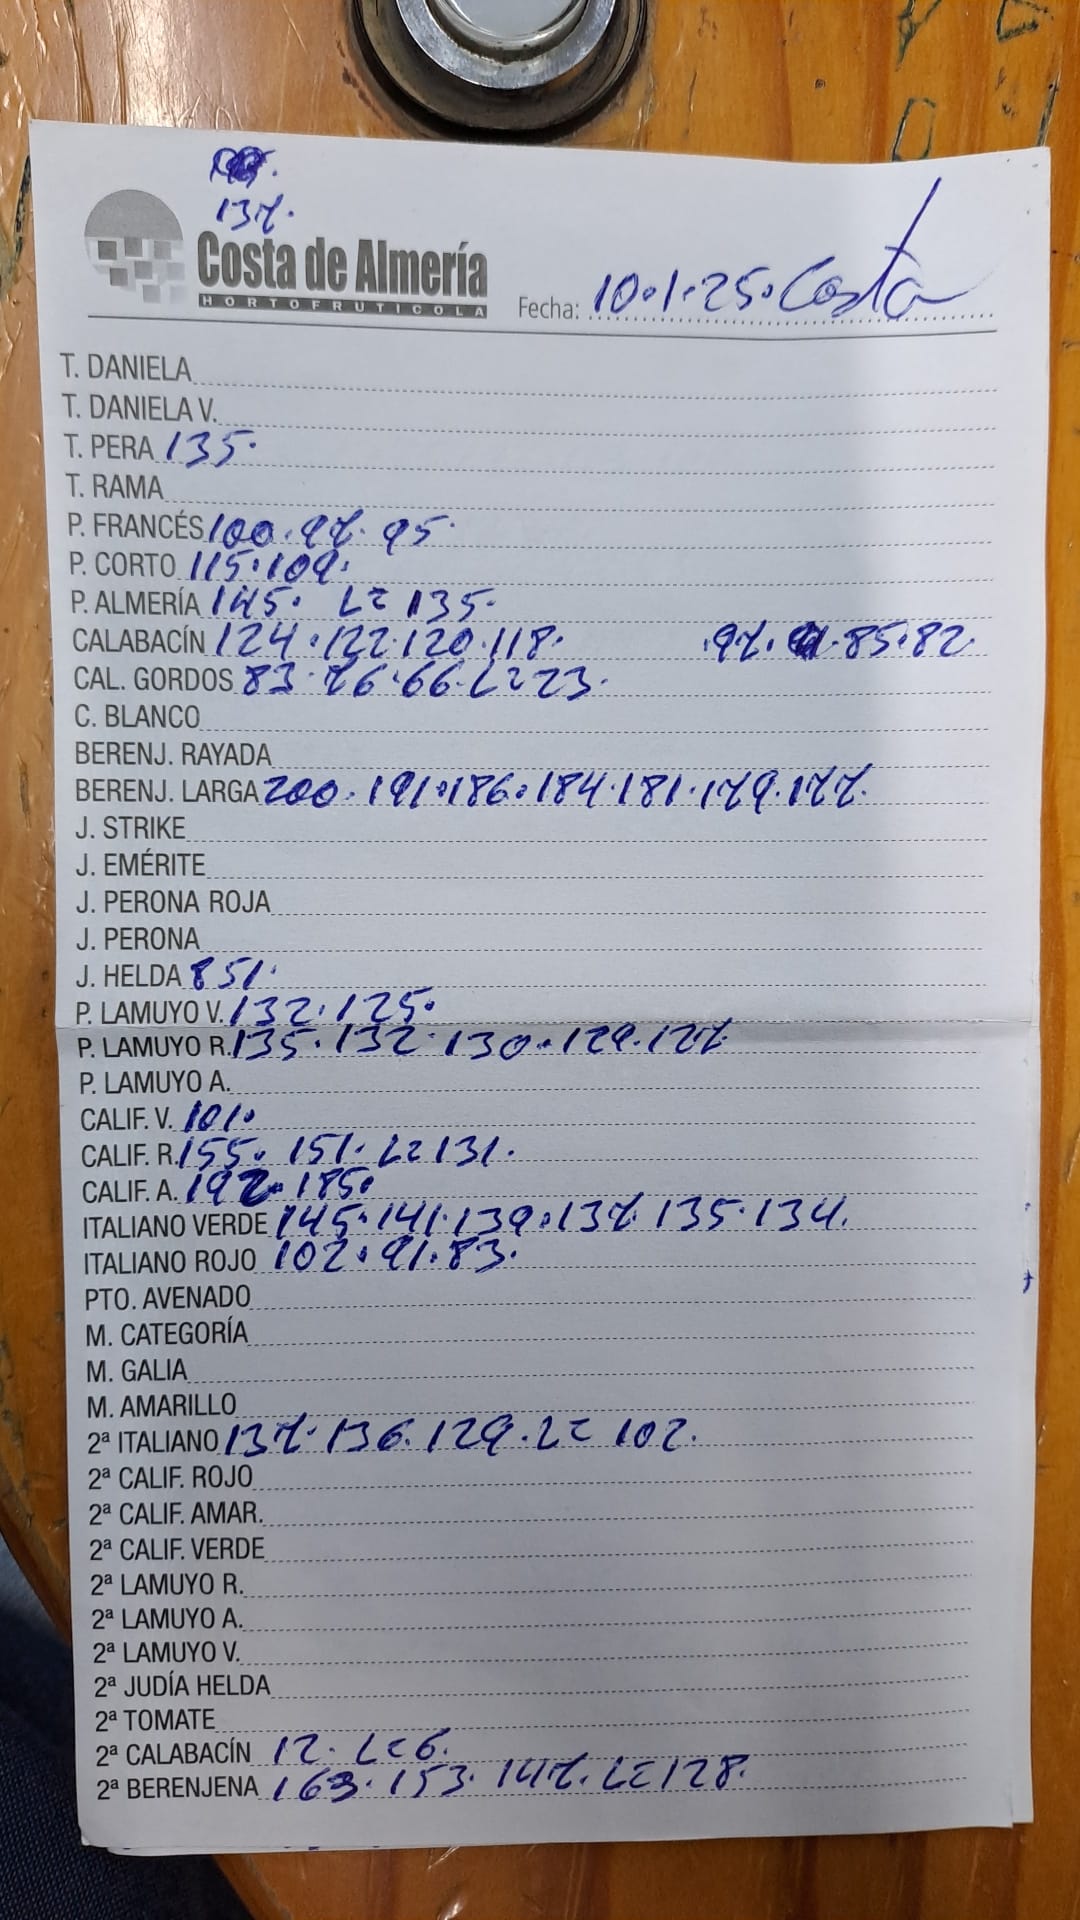 137.
Costa de Almería
HORTOFRUTICOLA
Fecha: 10.1.25. Costa
T. DANIELA
T. DANIELA V.
T. PERA 135.
T. RAMA
P. FRANCÉS 100.97.95.
P. CORTO 115.109.
P. ALMERÍA 145. L= 135.
CALABACÍN 124.122.120.118. .97. .85.82.
CAL. GORDOS 83.76.66.L=23.
C. BLANCO
BERENJ. RAYADA
BERENJ. LARGA 200.191.186.184.181.179.177.
J. STRIKE
J. EMÉRITE
J. PERONA ROJA
J. PERONA
J. HELDA 851.
P. LAMUYO V. 132.125.
P. LAMUYO R. 135.132.130.129.127.
P. LAMUYO A.
CALIF. V. 101.
CALIF. R. 155. 151. L= 131.
CALIF. A. 192. 185.
ITALIANO VERDE 145.141.139.137.135.134.
ITALIANO ROJO 102.91.83.
PTO. AVENADO
M. CATEGORÍA
M. GALIA
M. AMARILLO
2ª ITALIANO 137.136.129.L= 102.
2ª CALIF. ROJO
2ª CALIF. AMAR.
2ª CALIF. VERDE
2ª LAMUYO R.
2ª LAMUYO A.
2ª LAMUYO V.
2ª JUDÍA HELDA
2ª TOMATE
2ª CALABACÍN 12. L=6.
2ª BERENJENA 163.153.147.L=128.